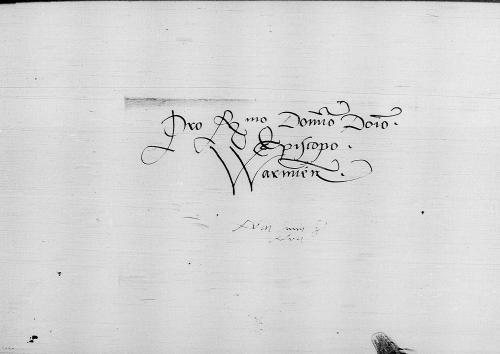 Pro R.mo Domino Domino.
Episcopo.
Warmien